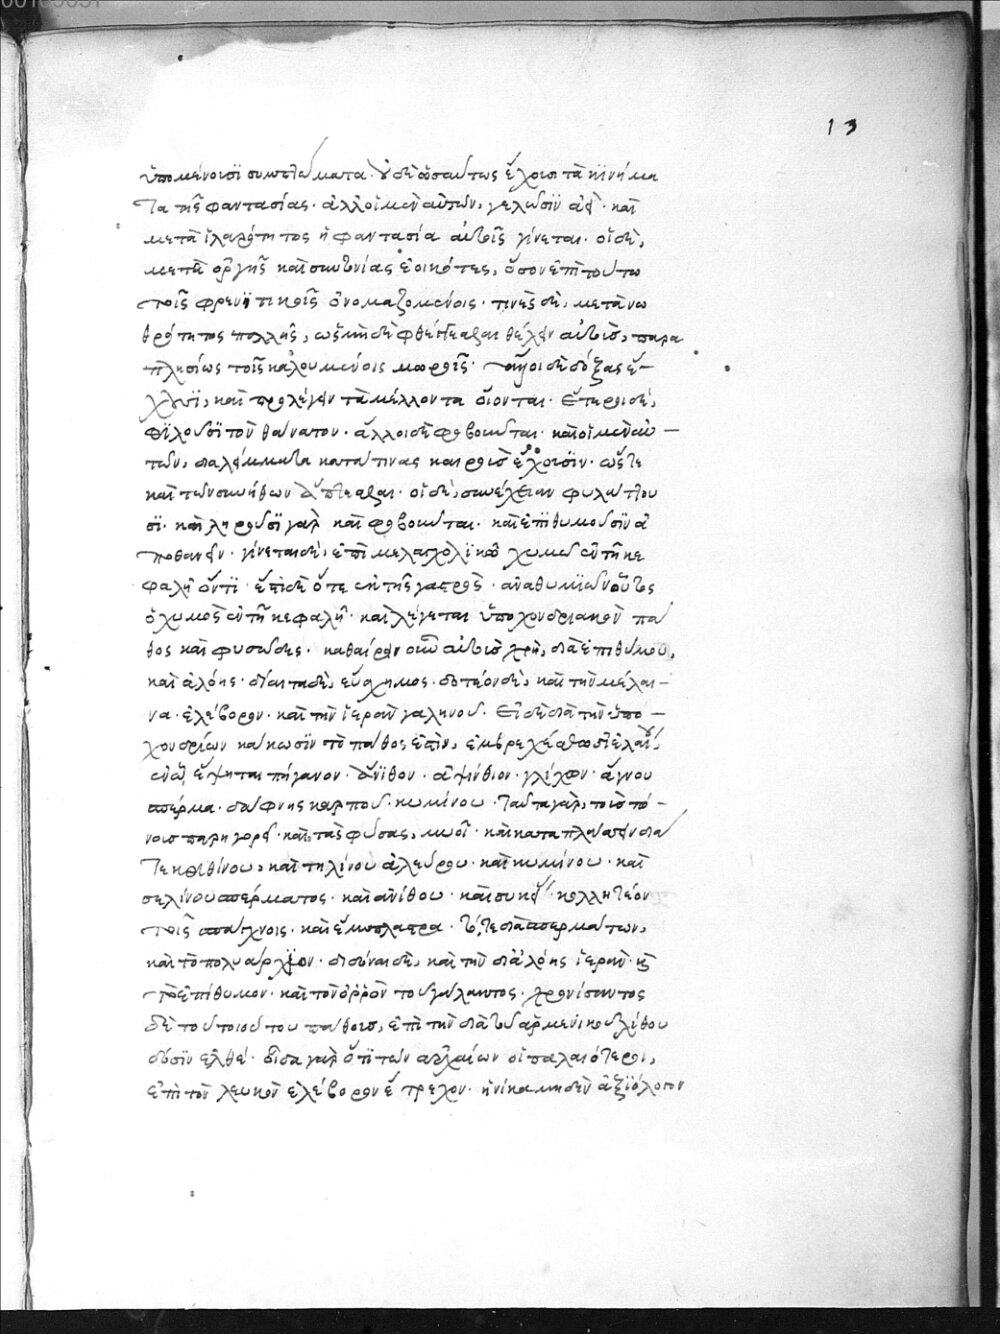 13
ὑπομένουσι συμπλέγματα. οὐδὲ ὡσαύτως ἔχουσι τὰ κινήμα
τα τῆς φαντασίας. ἀλλ' οἱ μὲν αὐτῶν, γελῶσιν ἀεὶ. καὶ
μετὰ ἱλαρότητος ἡ φαντασία αὐτοῖς γίνεται. οἱ δὲ,
μετὰ ὀργῆς καὶ συννοίας ἐοικότες, ὅσον ἐπὶ τούτω
τοῖς φρενητικοῖς ὀνομαζομένοις. τινὲς δὲ, μετὰ νω
θρότητος πολλῆς, ὡς μηδὲ φθέγγεσθαι θέλειν αὐτοὺς, παρα
πλησίως τοῖς καλουμένοις μωροῖς. τινὲς δὲ δόξας ἔ-
χουσι, καὶ προλέγειν τὰ μέλλοντα οἴονται. ἕτεροι δὲ,
φιλοῦσι τὸν θάνατον. ἄλλοι δὲ φοβοῦνται. καὶ οἱ μὲν αὐ-
τῶν, διαλείμματα κατά τινας καιροὺς ἔχουσιν. ὥστε
καὶ τῶν συνήθων ἅπτεσθαι. οἱ δὲ, συνέχειαν φυλάττου
σι. καὶ ληροῦσι γὰρ καὶ φοβοῦνται. καὶ ἐπιθυμοῦσιν ἀ
ποθανεῖν. γίνεται δὲ, ἐπὶ μελαγχολικῶ χυμῶ ἐν τῆ κε
φαλῆ ὄντι. ἔστι δὲ ὅτε ἐκ τῆς γαστρὸς. ἀναθυμιῶν οὗτος
ὁ χυμὸς ἐν τῆ κεφαλῆ. καὶ λέγεται ὑποχονδριακὸν πά
θος καὶ φυσῶδες. καθαίρειν οὖν αὐτοὺς χρὴ, διὰ ἐπιθύμου,
καὶ ἀλόης. δίαιτα δὲ, εὔχυμος. δοτέον δὲ, καὶ τὴν μέλαι-
να. ἐλέβορον. καὶ τὴν ἱερὰν γαληνοῦ. εἰ δὲ διὰ τὴν ὑπο-
χονδρίων κάκωσιν τὸ πάθος ἐστὶν, ἐμβρεχέσθωσι ἐλαίω,
ἐν ὧ ἕψηται πήγανον. ἄνιθον. ἀψίνθιον. γλίχων. ἄγνου
σπέρμα. δάφνης καρποῦ. κυμίνου. ταῦτα γὰρ, τοὺς πό-
νους παρηγορεῖ. καὶ τὰς φύσας, λύει. καὶ καταπλάσσειν διά
τε κριθίνου, καὶ τηλίνου ἀλεύρου. καὶ κυμίνου. καὶ
σελίνου σπέρματος. καὶ ἀνίθου. καὶ συκῆς. κολλητέον
τοῖς σπλάχνοις. καὶ ἔμπλαστρα. τό, τε διὰ σπερμάτων,
καὶ τὸ πολυάρχιον. διδόναι δὲ, καὶ τὴν δι' ἀλόης ἱερὰν. καὶ
τὸ ἐπίθυμον. καὶ τὸν ὀρρὸν τοῦ γάλακτος. χρονίσαντος
δὲ τοῦ τοιούτου πάθους, ἐπὶ τὴν διὰ τοῦ ἀρμενικοῦ λίθου
δόσιν ἐλθέ. οἶδα γὰρ ὅτι τῶν ἀρχαίων οἱ παλαιότεροι,
ἐπὶ τὸν λευκὸν ἐλέβορον ἔτρεχον. ἡνίκα μηδὲν ἀξιόλογον